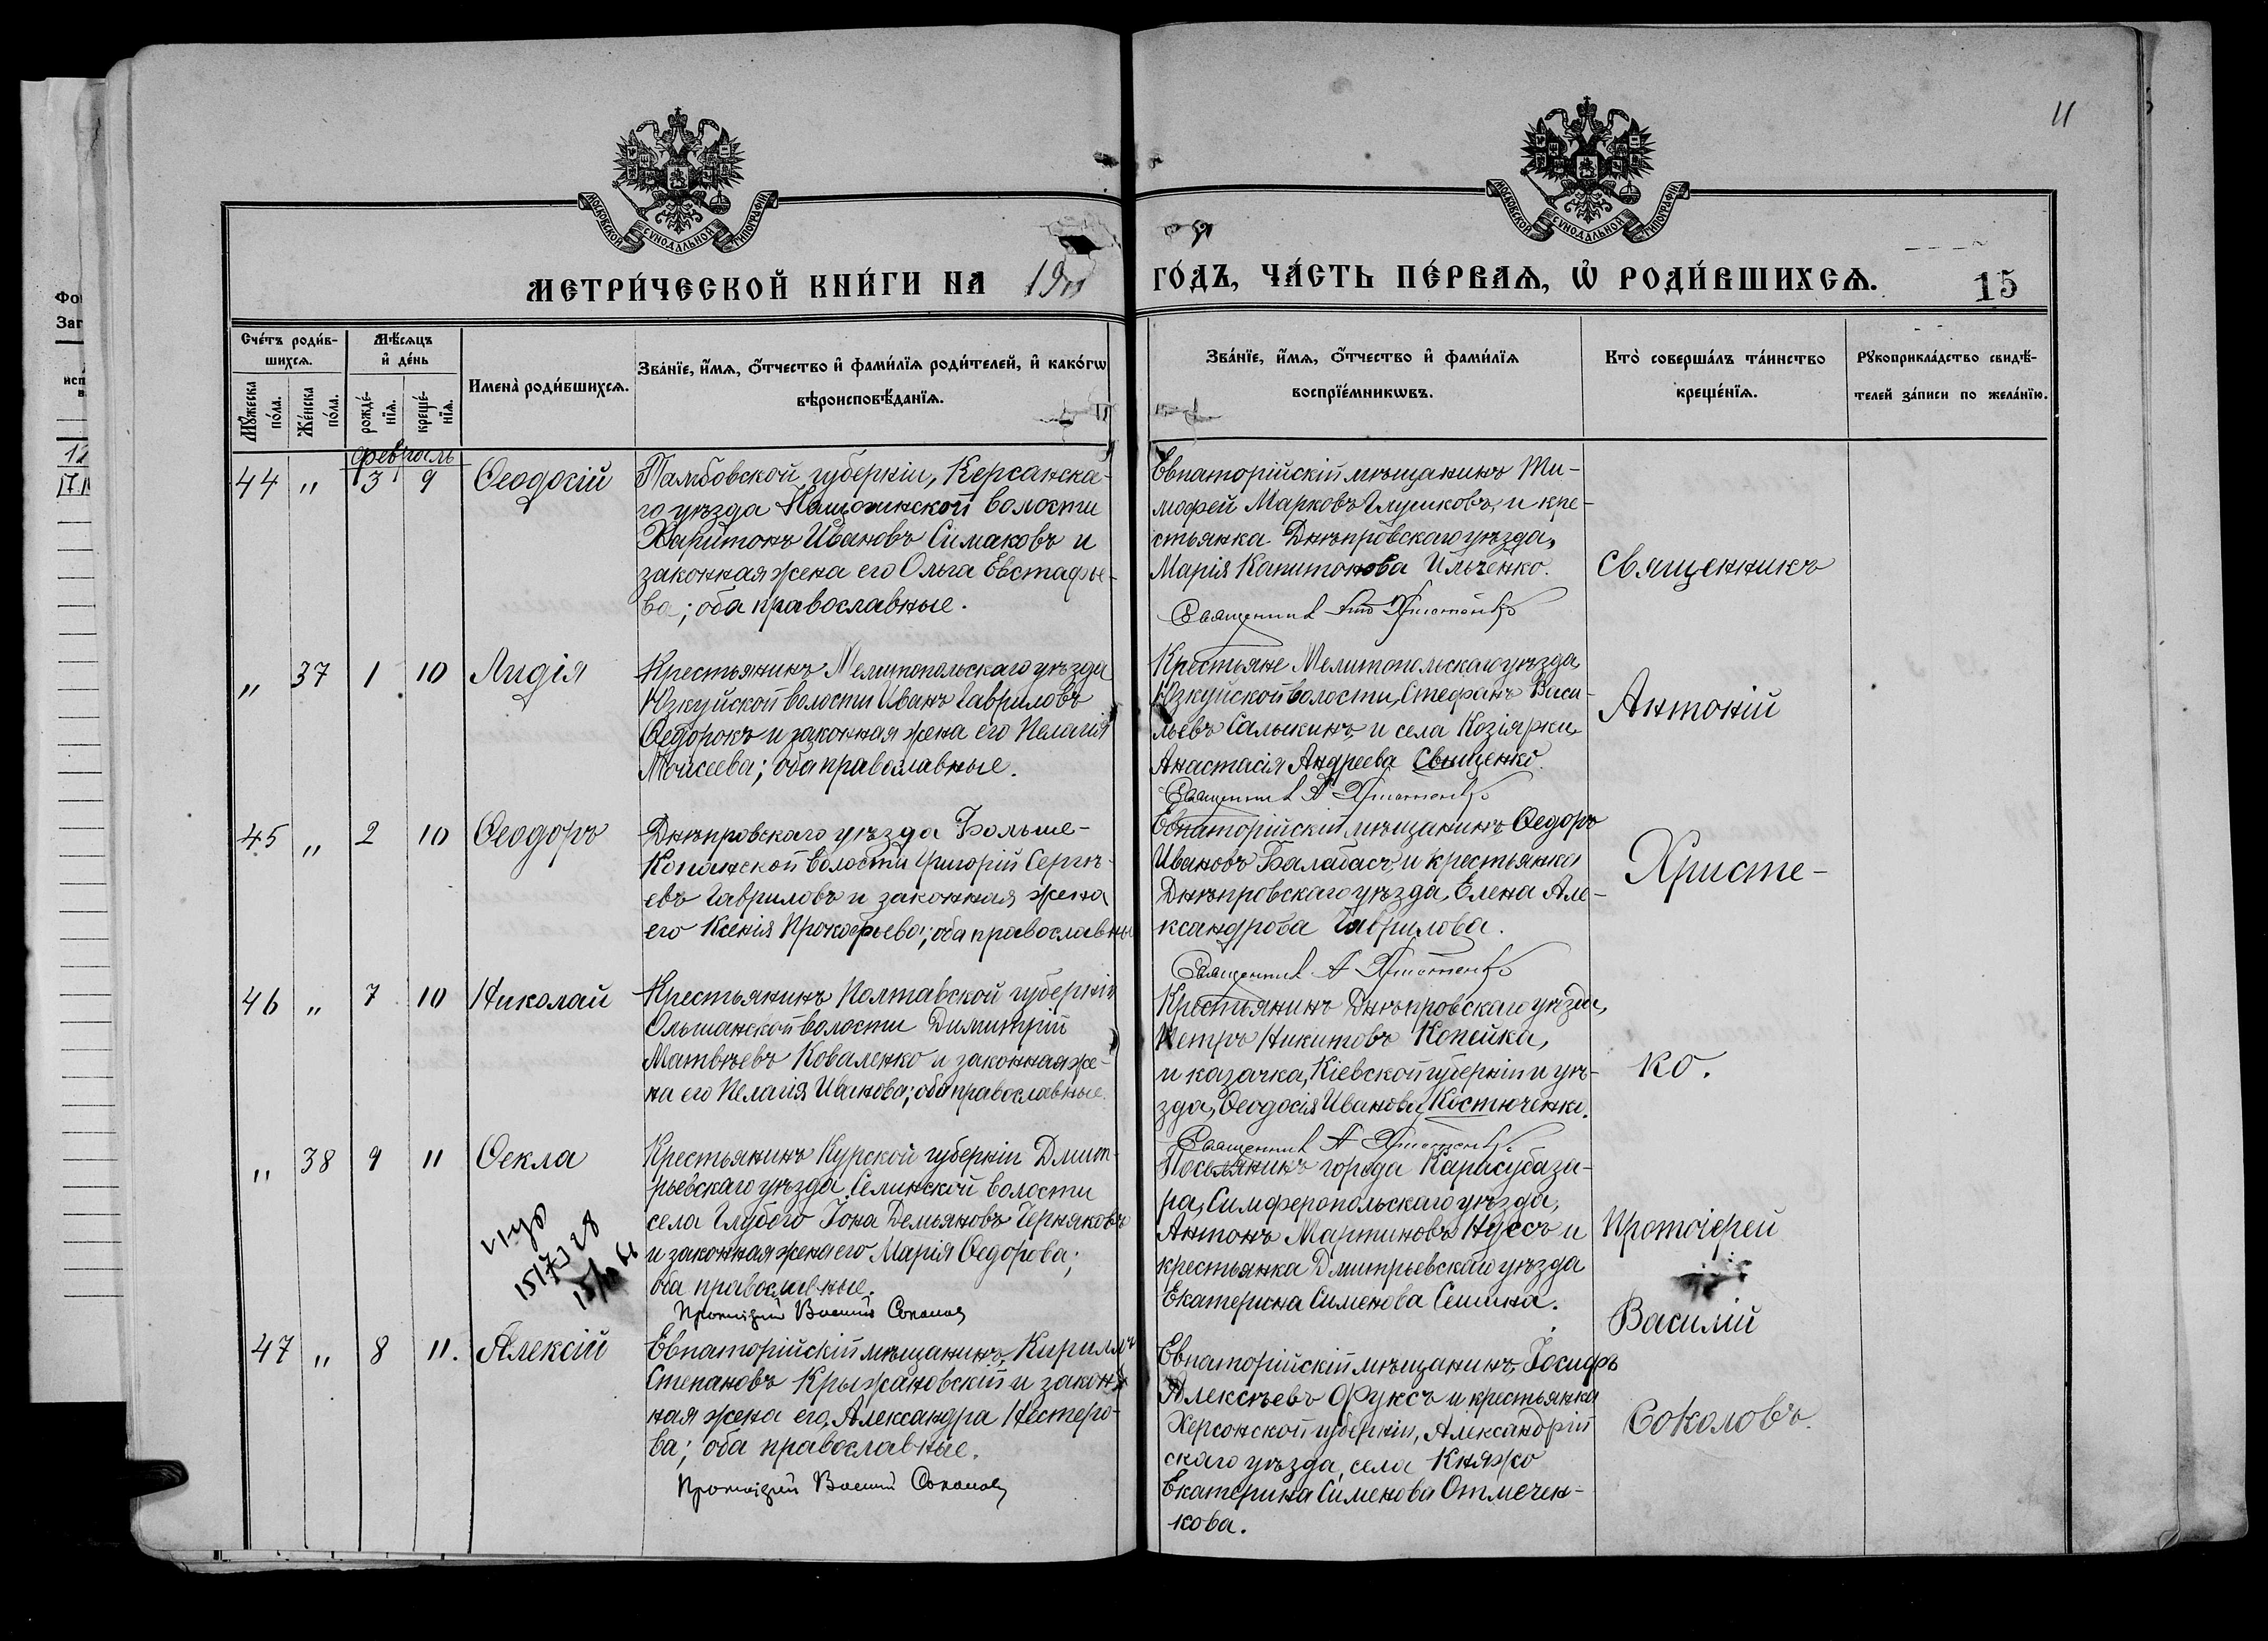 11
МОСКОВСКОЙ СѴНОДАЛЬНОЙ ТИПОГРАФІИ
МОСКОВСКОЙ СѴНОДАЛЬНОЙ ТИПОГРАФІИ
МЕТРИ́ЧЕСКОЙ КНИ́ГИ НА
ГО́ДЪ, ЧА́СТЬ ПЕ́РВАѦ, Ѡ҆ РОДИ́ВШИХСѦ.
15
Сче́тъ роди́в-
шихсѧ.
Мꙋ́жеска
по́ла.
Же́нска
по́ла.
Мѣ́сѧцъ
и҆ де́нь
рожде́-
нїѧ.
креще́-
нїѧ.
Имена̀ роди́вшихсѧ.
Зва́нїе, и҆́мѧ, ѻ҆́тчество и҆ фами́лїѧ роди́телей, и҆ како́гѡ
вѣроисповѣ́данїѧ.
Зва́нїе, и҆́мѧ, ѻ҆́тчество и҆ фами́лїѧ
воспрїе́мникѡвъ.
Кто̀ соверша́лъ та́инство
креще́нїѧ.
Рꙋкоприкла́дство свидѣ́-
телей за́писи по жела́нїю.
Февраль
44 " 3 9 Ѳеодосій
Тамбовской губерніи, Керсанска-
го уѣзда волости
Харитонъ Ивановъ Симаковъ и
законная жена его Ольга Евстафье-
ва; оба православные.
Евпаторійскій мѣщанинъ Ти-
мофей Марковъ Глушковъ, и кре-
стьянка Днѣпровскаго уѣзда,
Марія Капитонова Ильченко.
Священникъ
" 37 1 10 Лидія
Крестьянинъ Мелитопольскаго уѣзда
Юзкуйской волости Иванъ Гавриловъ
Ѳедорокъ и законная жена его Пелагія
Моисеева; оба православные.
Крестьяне Мелитопольскаго уѣзда,
Юзкуйской волости, Стефанъ Васи-
льевъ Салыкинъ и села Козіярки,
Анастасія Андреева Свищенко.
Священник А
Антоній
45 " 2 10 Ѳеодоръ
Днѣпровскаго уѣзда Больше-
Копанской волости Григорій Сергѣ-
евъ Гавриловъ и законная жена
его Ксенія Прокофьева; оба православны
Евпаторійскій мѣщанинъ Ѳедоръ
Ивановъ Балабасъ и крестьянка
Днѣпровскаго уѣзда, Елена Але-
ксандрова Гаврилова.
Священник А
Христе-
46 " 7 10 Николай
Крестьянинъ Полтавской губерніи
Ольшанской волости Димитрій
Матвѣевъ Коваленко и законная же-
на его Пелагія Иванова; оба православные.
Крестьянинъ Днѣпровскаго уѣзда,
Петръ Никитовъ Копейка,
и казачка, Кіевской губерніи и уѣ-
зда, Ѳеодосія Иванова Костюченко.
Священник А
ко.
" 38 9 11 Ѳекла
Крестьянинъ Курской губерніи Дмит-
рьевскаго уѣзда, Селинской волости
села Глубого Іона Демьяновъ Черняковъ
и законная жена его Марія Ѳедорова;
оба православные.
Протоіерей Василій Соколов
Поселянинъ города Карасубаза-
ра, Симферопольскаго уѣзда,
Антонъ Мартиновъ Нуссъ и
крестьянка Дмитрьевскаго уѣзда
Екатерина Сименова Семина.
Протоіерей
Василій
47 " 8 11. Алексій
Евпаторійскій мѣщанинъ, Кириллъ
Степановъ Крыжановскій и закон-
ная жена его, Александра Нестеро-
ва; оба православные.
Протоіерей Василій Соколов
Евпаторійскій мѣщанинъ, Іосифъ
Алексѣевъ Фуксъ и крестьянка
Херсонской губерніи, Александрій
скаго уѣзда, села Княжо
Екатерина Сименова Отмечен-
кова.
Соколовъ.